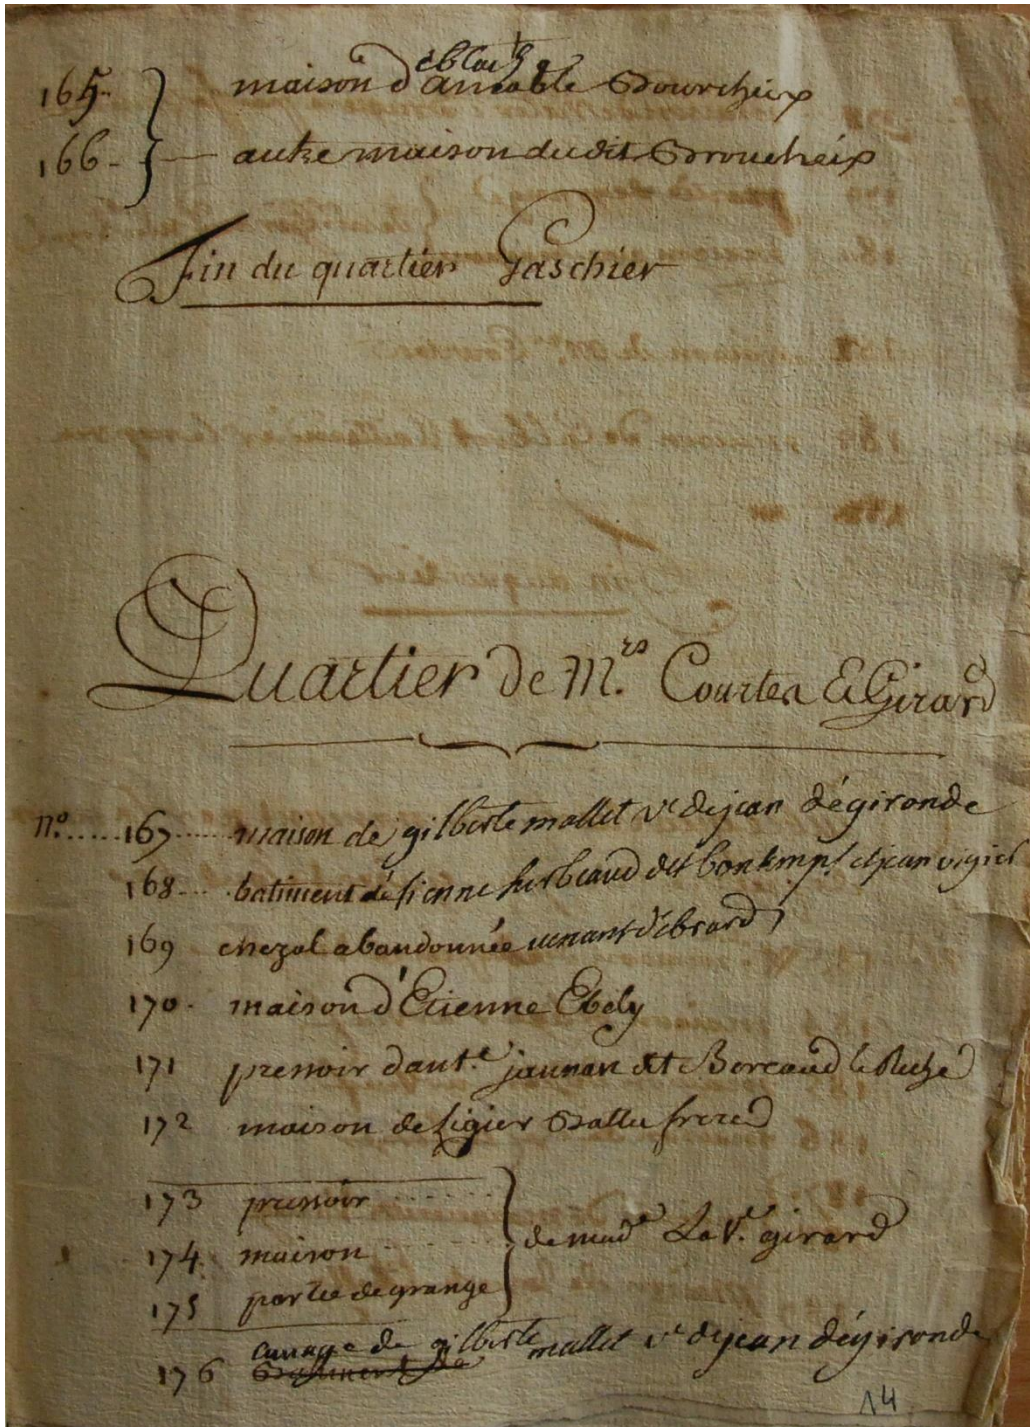 165. maison d'amable Bourcheix
166 - autre maison du dit Broucheix
Fin du quartier Paschier
Quartier De Mrs. Courtea & Girard
No. .... 167 ..... maison de gilberte mallet ve de jean dégironde
168 ... batiment détienne herbeaud dit bontemps et jean vigier
169 chezal abandonnée venant d'ébrard
170 - maison d'Etienne Ebély
171 pressoir d'antne jaunan et Bereaud
172 maison de Ligier Ballu frered
173 pressoir .......
174 maison ....... de made La Ve. girard
175 partie de grange
176 cuvage de gilberte mallet ve de jean dégironde
14